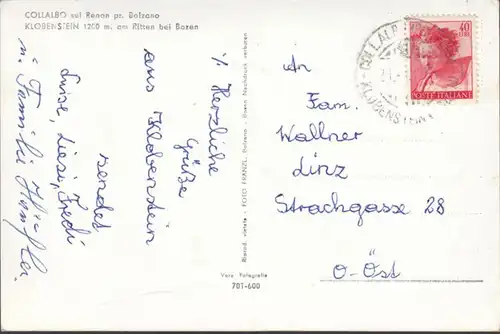 COLLALBO sul Renon pr. Bolzano
KLOBENSTEIN 1200 m. am Ritten bei Bozen
% Herzliche
Grüße
aus Klobenstein
sendet
Luise, Liesi, Fredi
u. Familie
Riprod. vietata - FOTO FRANZL, Bolzano - Bozen Nachdruck verboten
Vera Fotografia
707-600
40
POSTE ITALIANE
KLOBENSTEIN
An
Fam.
Wallner
Linz
Strachgasse 28
O-Öst